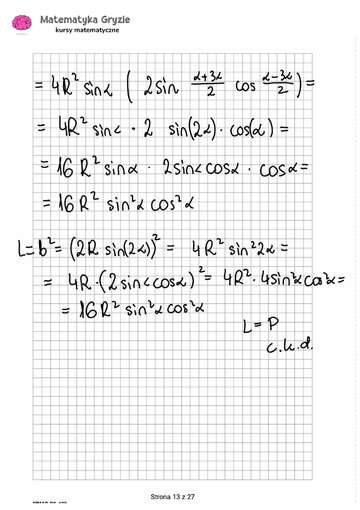 Matematyka Gryzie
kursy matematyczne
= 4R² sinα ( 2sin (α+3α)/2 cos (α-3α)/2 ) =
= 4R² sinα · 2 sin(2α) · cos(α) =
= 16R² sinα · 2sinαcosα · cosα =
= 16R² sin²α cos²α
L = b² = (2R sin(2α))² = 4R² sin²2α =
= 4R·(2sinαcosα)² = 4R²·4sin²αcos²α =
= 16R² sin²αcos²α
L = P
c.k.d.
Strona 13 z 27